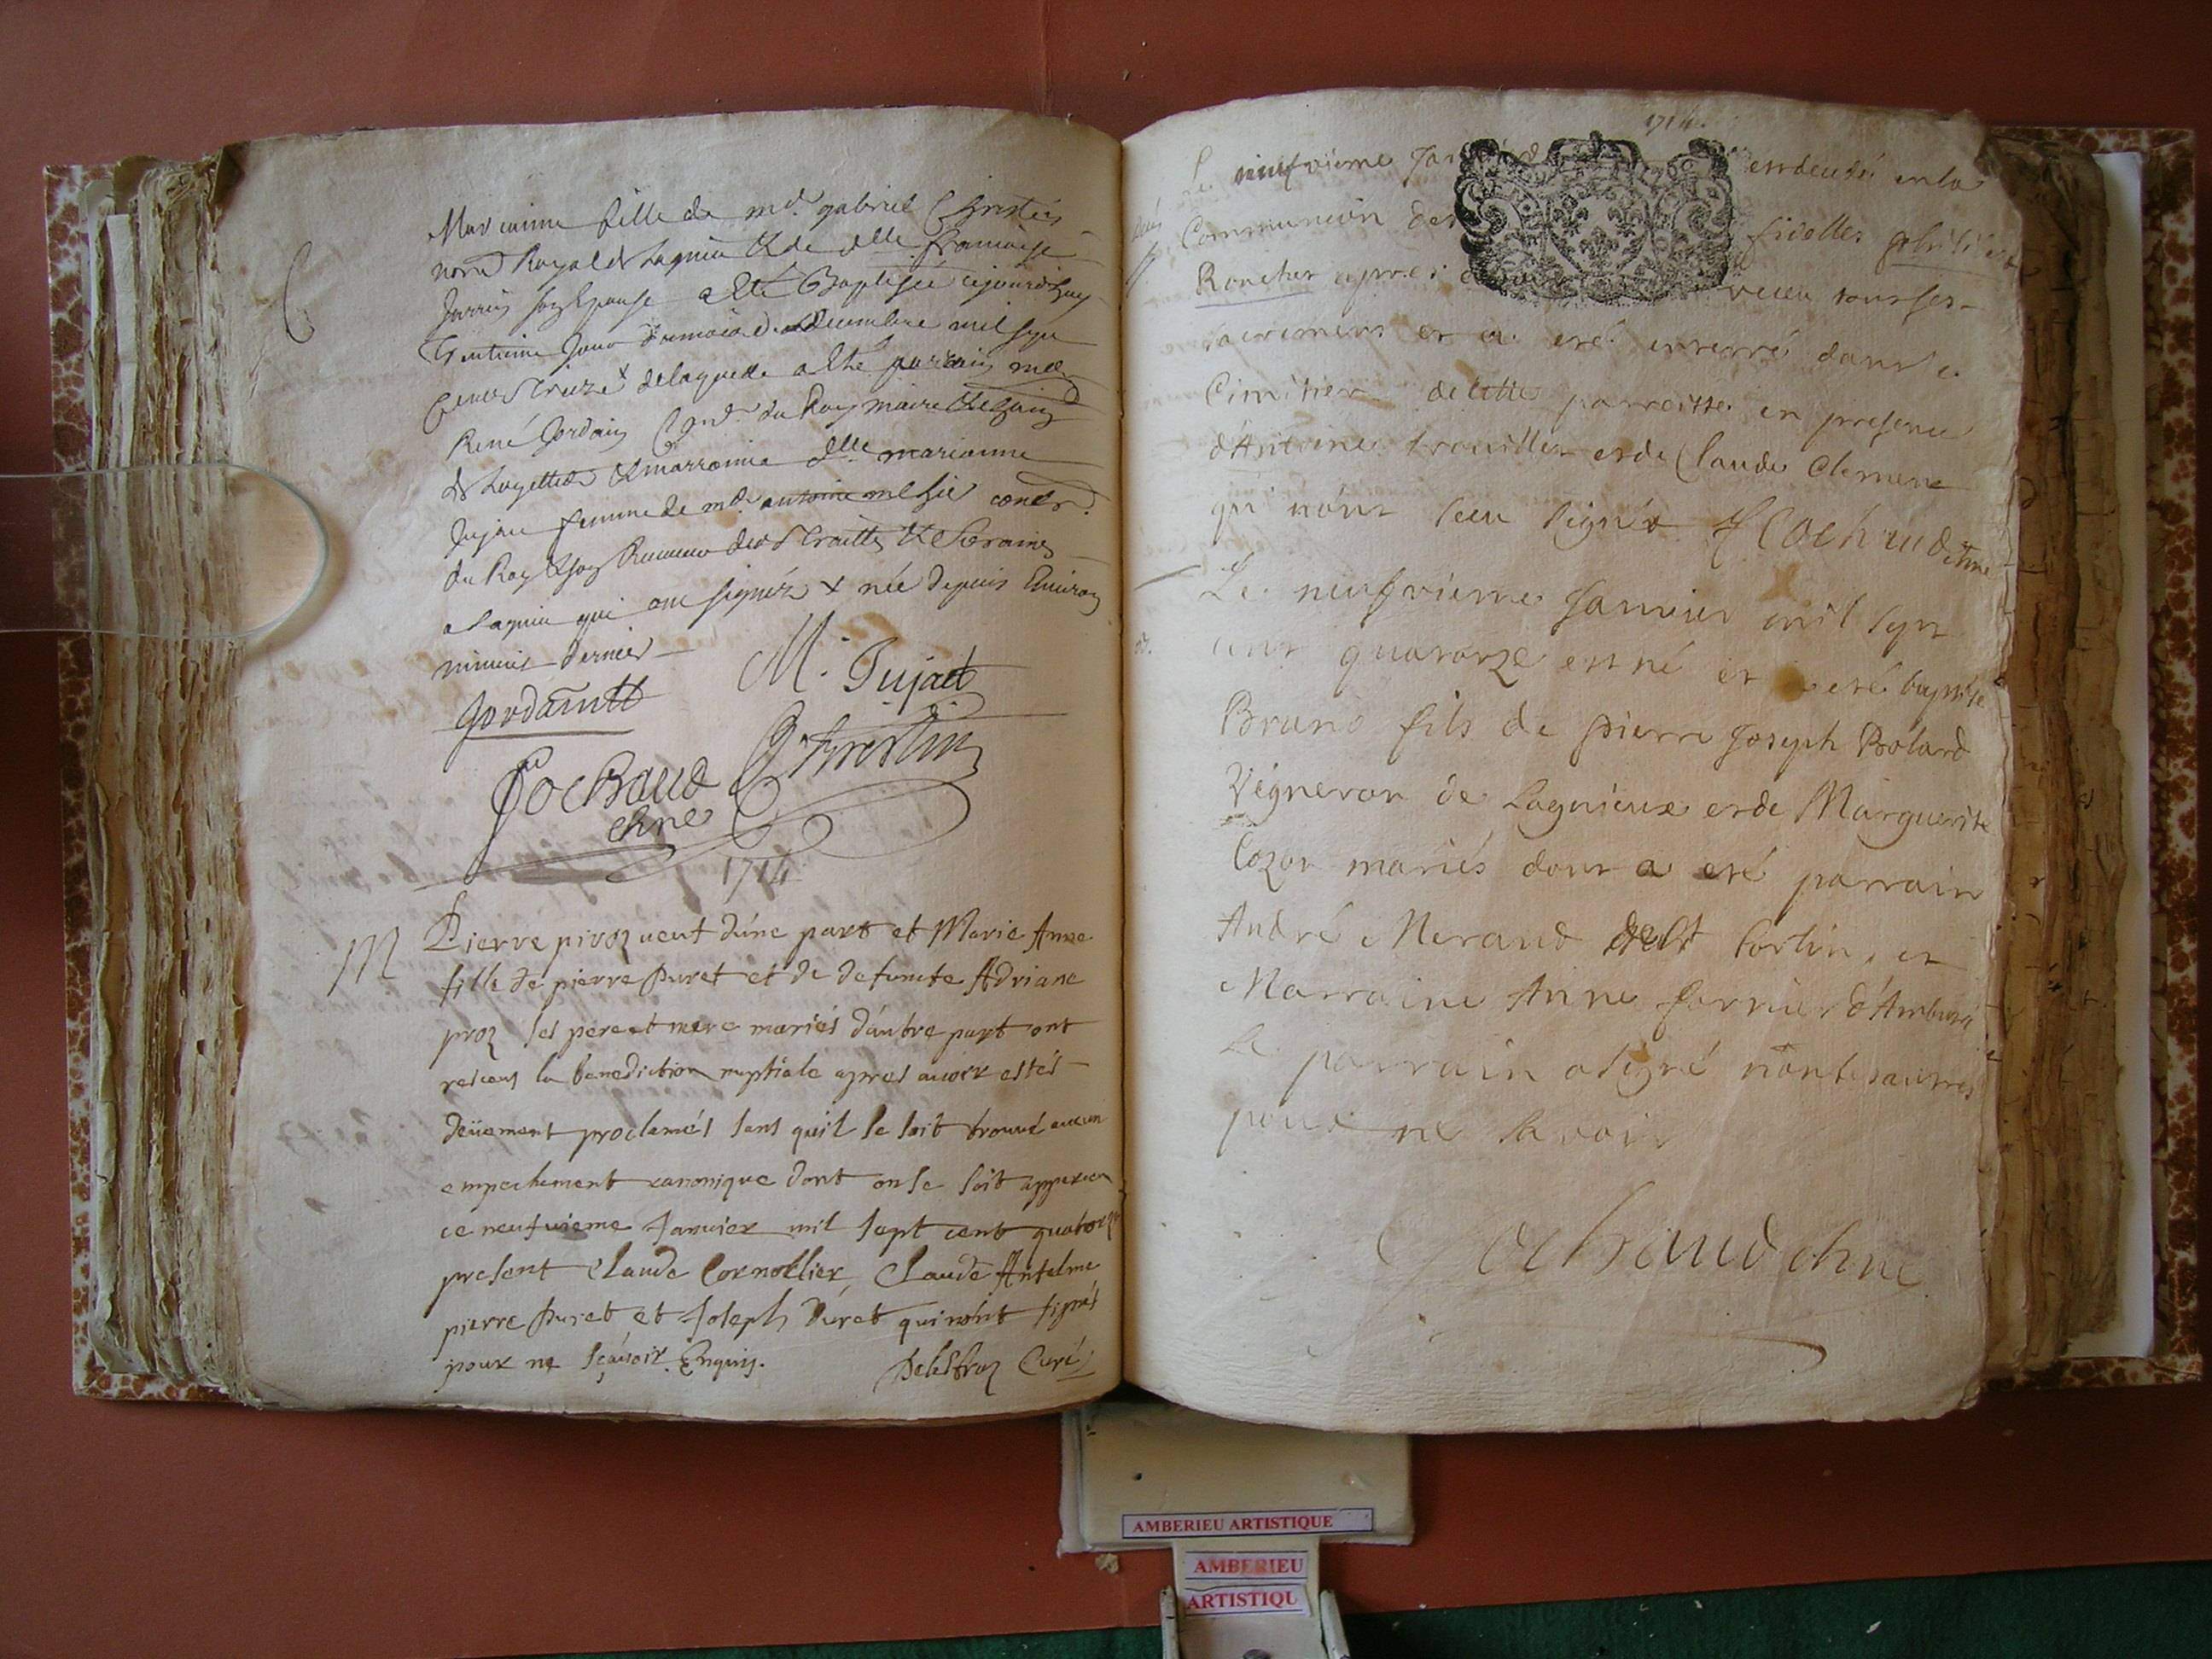 Marianne fille de md. gabriel Christin
Royal de Lagnieu & de delle francoise
son Epouse a Eté Baptisée ce jourdhuy
trentieme jour du mois de decembre mil sept
cents treize x de laquelle a Eté parrain
René Jordain du Roy maire
de Loyettes & marraine delle marianne
Jujat femme de md. antoine
du Roy
a Lagnieu qui ont signéz x née depuis Environ
minuit dernier
Jordain M. Jujat
Cochaud Christin
chne
1714
M
Pierre pirozuent d'úne part et Marie Anne
fille de pierre Duret et de defuncte Adriane
proz ses pere et mere mariés d'áutre part ont
receus la benediction nuptiale apres avoir estés
deüement proclamés sans quil se soit trouvé aucun
empechement canonique dont on se soit apperceu
ce neufvieme Janvier mil sept cent quatorze
présent Claude Cornollier, Claude Antelme
pierre Duret et Joseph Duret qui nont signés
pour ne sçavoir. Enquis. Curé
1714.
Le neufvieme est decedé en la
Communion des fidelles
Roucher apres receu tous ses
sacremens et a eté enterré dans le
Cimitier de cette parroisse en presence
d'Antoine trouillet et de Claude Clement
qui nónt sceu signér Cochaud chne
Le neufvieme Janvier mil sept
cent quatorze est né et a eté baptisé
Bruno fils de pierre Joseph Bolard
Vigneron de Lagnieux et de Marguerite
Cozon mariés dont a eté parrain
André Meraud Cortin, et
Marraine Anne d'Ambutrix
Le parrain a signé non les autres
pour ne savoir
Cochaud chne
AMBERIEU ARTISTIQUE
AMBERIEU
ARTISTIQU